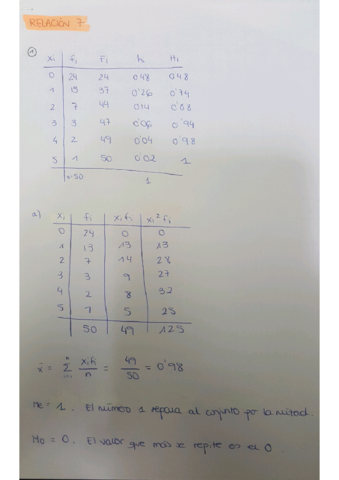 RELACIÓN 7
①
xi fi Fi h Hi
0 24 24 0'48 0'48
1 13 37 0'26 0'74
2 7 44 0'14 0'88
3 3 47 0'06 0'94
4 2 49 0'04 0'98
5 1 50 0'02 1
n=50 1
a) xi fi xifi xi²fi
0 24 0 0
1 13 13 13
2 7 14 28
3 3 9 27
4 2 8 32
5 1 5 25
50 49 125
x̄ = Σ xifi/n = 49/50 = 0'98
Me = 1. El número 1 separa al conjunto por la mitad.
Mo = 0. El valor que más se repite es el 0.